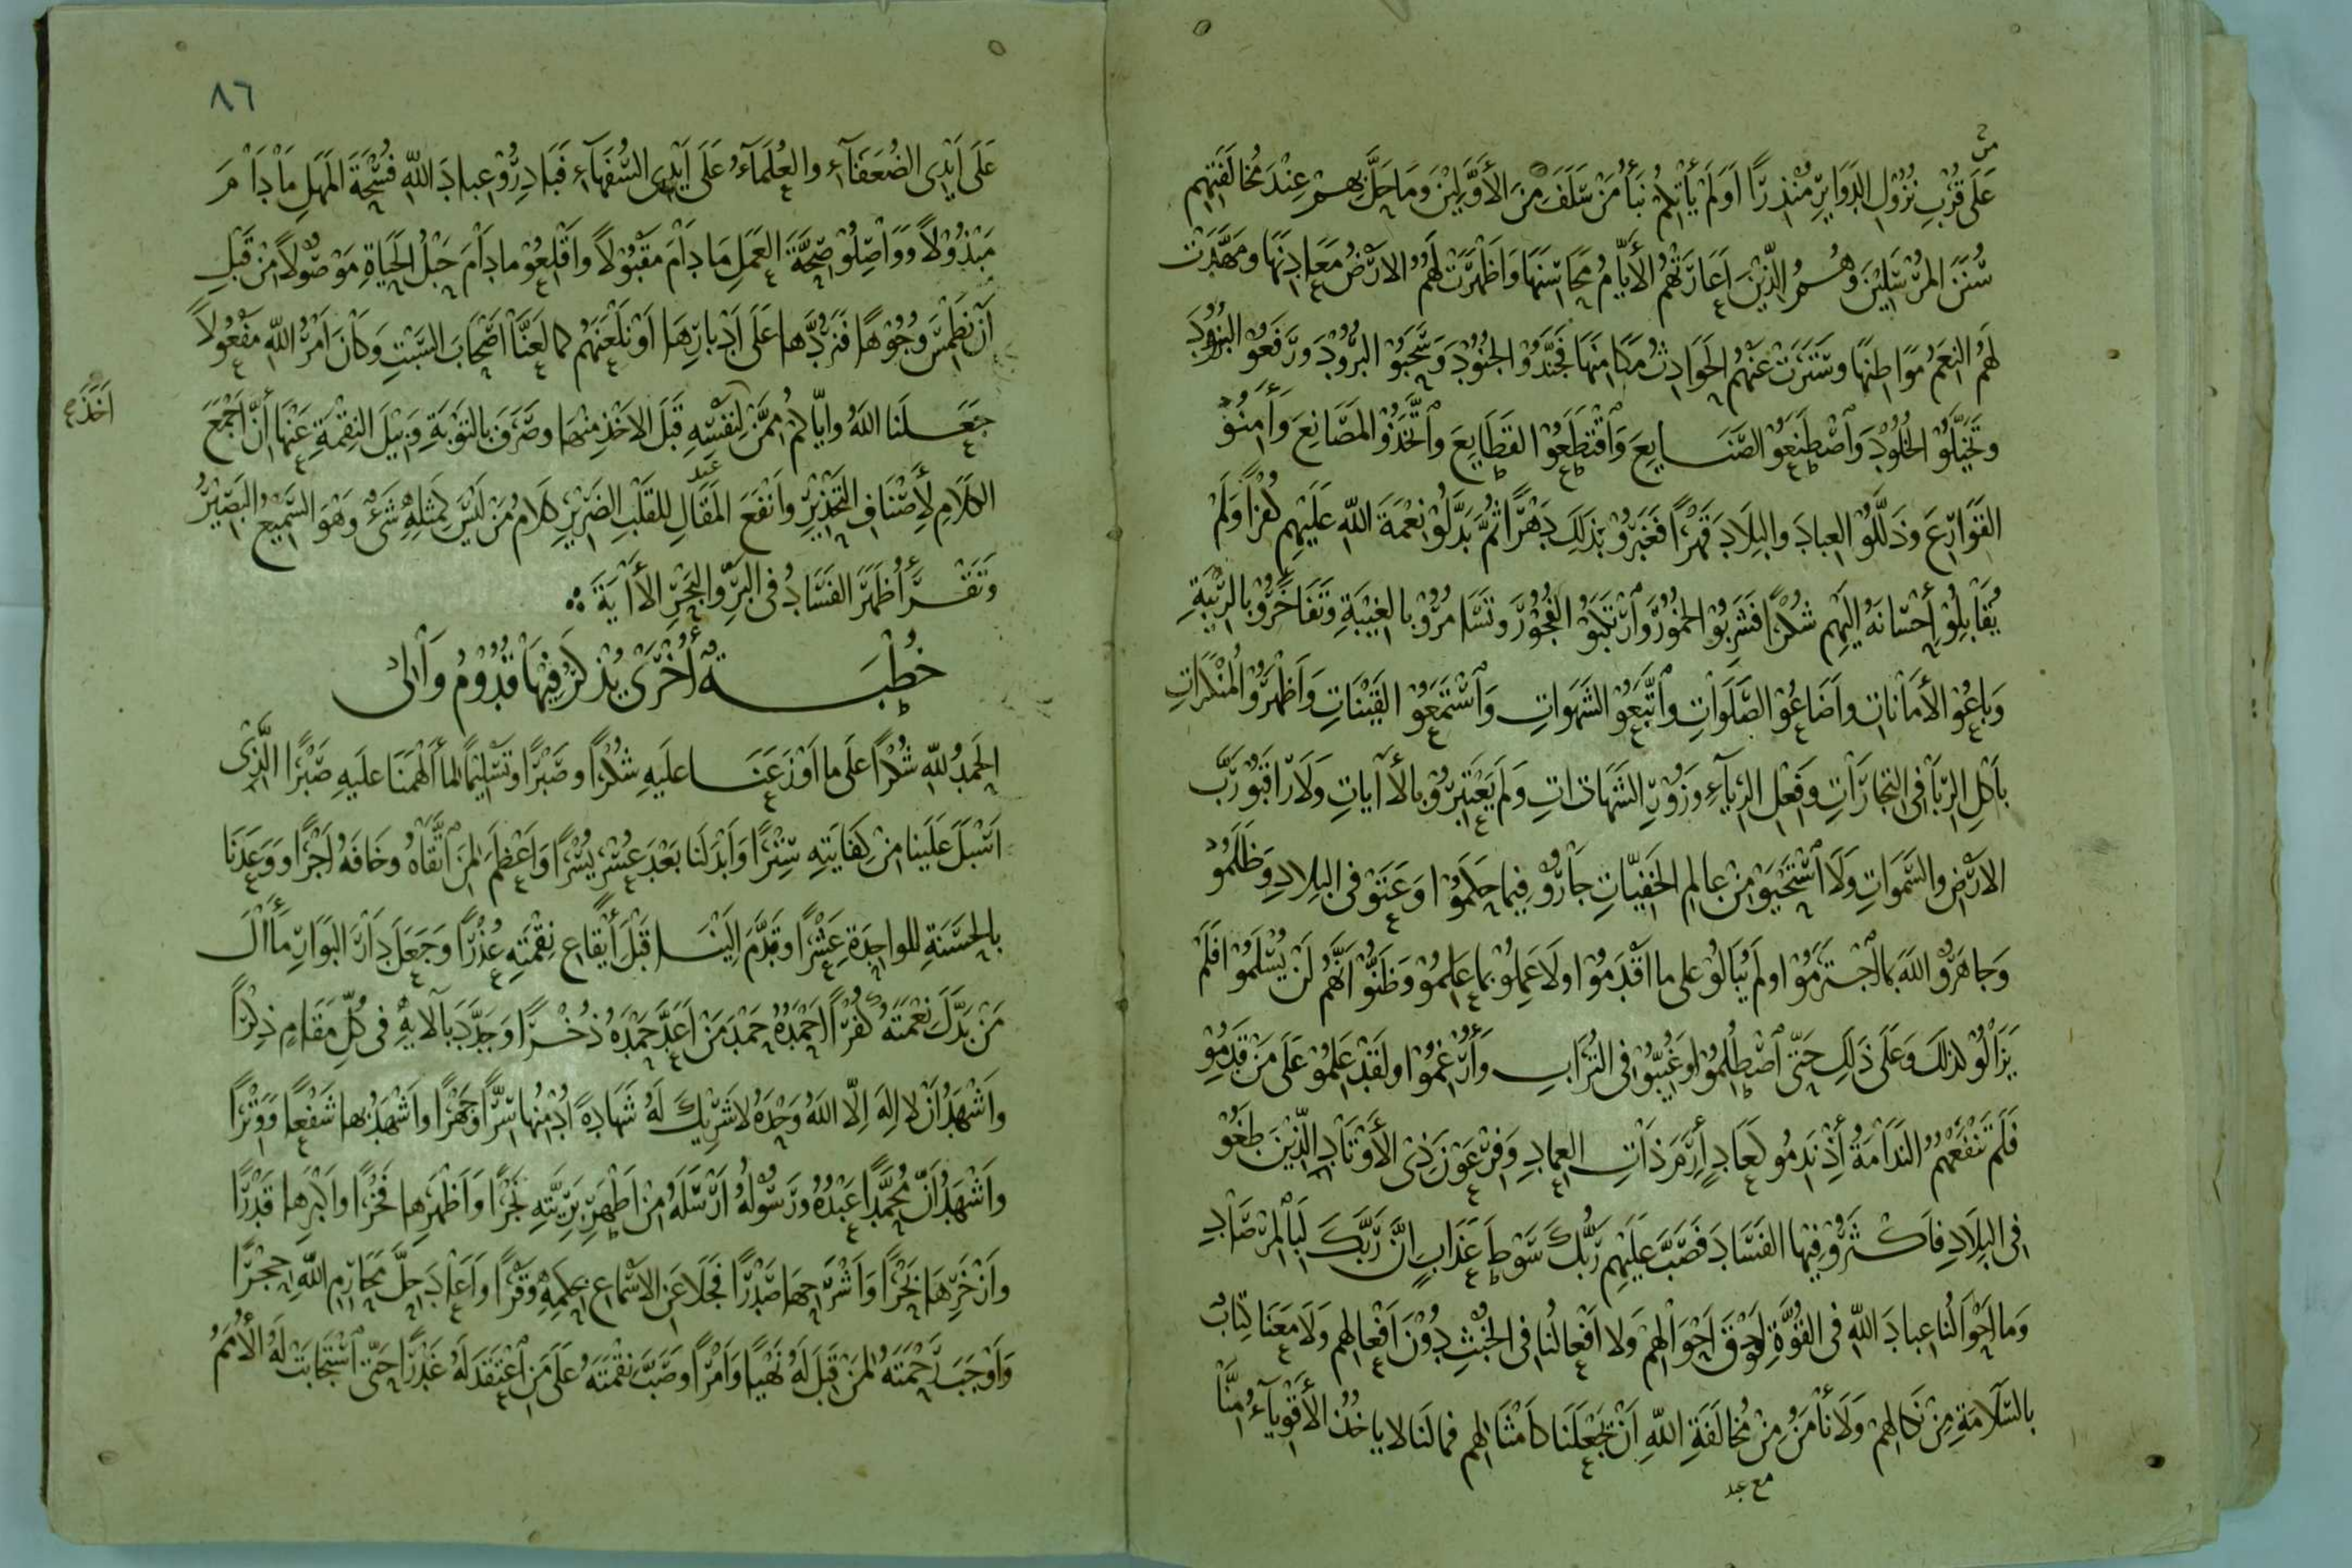 من
عَلَى قُرْبِ نُزُوْلِ الدَّوَايِرِ مُنْذِرًا اَوَلَمْ يَأْتِكُمْ نَبَأُ مَنْ سَلَفَ مِنَ الأَوَّلِيْنَ وَمَا حَلَّ بِهِمْ عِنْدَ مُخَالَفَتِهِم
سُنَنَ المُرْسَلِيْنَ وَهُمُ الَّذِيْنَ اَعَارَتْهُمُ الأَيَّامُ مَحَاسِنَهَا وَاَظْهَرَتْ لَهُمُ الاَرْضُ مَعَادِنَهَا وَمَهَّدَتْ
لَهُمُ النِعَمُ مَوَاطِنَهَا وسَتَرَتْ عَنْهُمُ الحَوَادِثُ مَكَامِنَهَا فَجَنَّدُوْ الجُنُوْدَ وَسَحَبُوْ البُرُوْدَ وَرَفَعُوْ البُنُوْدَ
وتَخَيَّلُوْ الخُلُوْدَ وَاصْطَنَعُوْ الصَّنَايِعَ وَاقْتَطَعُوْ القَطَايِعَ وَاتَّخَذُوْ المَصَانِعَ وَأَمِنُوْ
القَوَارِعَ وذَلَّلُوْ العِبادَ والبِلَادَ قَهْرًا فَغَبَرُوْ بِذَلِكَ دَهْرًا ثُمَّ بَدَّلُوْ نِعْمَةَ اللّهِ عَلَيْهِم كُفْرًا وَلَمْ
يُقَابِلُوْ اِحْسَانَهُ اِلَيْهِم شُكْرًا فَشَرِبُوْ الخُمُوْرَ وَارْتَكَبُوْ الفُجُوْرَ وتَسَامَرُوْ بِالغِيْبَةِ وَتَفَاخَرُوْ بِالرِّيْبَةِ
وَبَاعُوْ الأَمَانَاتِ وَاَضَاعُوْ الصَّلَوَاتِ وَاتَّبَعُوْ الشَهَوَاتِ وَاسْتَمَعُوْ القَيْنَاتِ وَاَظْهَرُوْ المُنْكَرَاتِ
بِاَكْلِ الرِّبَا فِى التِجَارَاتِ وَفِعْلِ الرِيَآءِ وَزُوْرِ الشَهَادَاتِ وَلَم يَعْتَبِرُوْ بِالأَايَاتِ وَلَا رَاقَبُوْ رَبَّ
الاَرْضِ والسَّمَوَاتِ وَلَا اسْتَحْيَوْ مِنْ عَالِمِ الخَفِيَّاتِ جَارُوْ فِيمَا حَكَمُوْا وَعَتَوْ فى البِلَادِ وَظَلَمُوْ
وَجَاهَرُوْ اللّهَ بِمَا اجْتَرَمُوْا ولَمْ يُبَالُوْ على ما اَقْدَمُوْا ولَا عَمِلُوْ بِمَا عَلِمُوْ وَظَنُّوْ اَنَّهُم لَنْ يُسْلَمُوْا فَلَمْ
يَزَالُوْ كذلكَ وَعَلَى ذَلِكَ حَتَّى اصْطُلِمُوْا وَغُيِّبُوْ فى التُرَابِ وَأُرْغِمُوْا ولَقَدْ عَلِمُوْ عَلَى مَنْ قَدِمُوْ
فَلَم تَنْفَعْهُمُ النَدَامَةُ اِذْ نَدِمُو كَعَادِ اِرَمَ ذَاتِ العِمَادِ وَفِرْعَوْنَ ذِى الأَوْتَادِ الَّذِيْنَ طَغَوْ
فى البِلَادِ فَاَكْثَرُوْ فِيْهَا الفَسَادَ فَصَبَّ عَلَيْهِم رَبُّكَ سَوْطَ عَذَابٍ اِنَّ رَبَّكَ لَبِالْمِرْصَادِ
وَمَا اَحْوَالُنا عِبادَ اللّهِ فى القُوَّةِ فَوْقَ اَحْوَالِهِمْ ولا اَفْعَالُنَا فى الخُبْثِ دُوْنَ اَفْعَالِهِم ولَا مَعَنَا كِتَابٌ
بالسَّلَامَةِ مِنْ نَكَالِهِمْ وَلَا نَأمَنُ مِنْ مُخَالَفَةِ اللّهِ اَنْ تَجْعَلَنَا كَاَمْثَالِهِم فمالَنَا لا يَاخُذُ الأَقْوِيَآءُ مِنَّا
٨٦
عَلَى اَيْدِى الضُعَفَآءِ والعُلَمَآءُ عَلَى اَيْدِى السُّفَهَآءِ فَبَادِرُوْ عِبادَ اللّهِ فُسْحَةَ المَهَلِ مَا دَامَ
مَبْذُوْلاً وَوَاصِلُوْ صِحَّةَ العَمَلِ مَا دَامَ مَقْبُوْلاً واَقْلِعُوْ مادَامَ حَبْلُ الحَيَاةِ مَوْصُوْلاً مِنْ قَبْلِ
اَنْ نَطْمِسَ وُجُوْهًا فَنَرُدَّهَا عَلَى اَدْبَارِهَا اَوْ نَلْعَنَهُم كمَا لَعَنَّا اَصْحَابَ السَّبْتِ وَكَانَ اَمْرُ اللّهِ مَفْعُوْلاً
جَعَلَنَا اللّهُ وايّاكُم مِمَّنْ لِنَفْسِهِ قَبْلَ الاَخْذِ مِنْهَا وصَرَفَ بالتَوْبَةِ وَبِيْلَ النِقْمَةِ عَنْهَا اَنَّ اَجْمَعَ
اَخَذَ
الكَلَامِ لِأَصْنَافِ التَحْذِيْرِ واَنْفَعَ المَقَالِ لِلقَلْبِ الضَرِيْرِ كَلَامُ مَنْ لَيْسَ كَمِثْلِهِ شَىْءٌ وَهُوَ السَّمِيْعُ البَصِيْرُ
وَتَقْرَأُ ظَهَرَ الفَسَادُ فى البَرِّ والبَحْرِ الأَايَةَ
خُطْبَةٌ أُخْرَى يُذْكَرُ فِيْهَا قُدُوْمُ وَالىْ
الحَمْدُ للّهِ شُكْرًا عَلَى ما اَوْزَعَنَا عَلَيهِ شُكْرًا وصَبْرًا وتَسْلِيْمًا لما أَلْهَمَنَا عَليهِ صَبْرًا الَّذِى
اَسْبَلَ عَلَينا مِنْ كِفَايَتِهِ سِتْرًا وَاَبْدَلَنا بَعْدَ عُسْرٍ يُسْرًا وَاَعْظَمَ لِمَنِ اتَّقَاهُ وخَافَهُ اَجْرًا ووَعَدَنَا
بالحَسَنَةِ للواحِدَةِ عَشْرًا وقَدَّمَ اِلَيْنَا قَبْلَ اِيْقَاعِ نِقْمَتِهِ عُذْرًا وَجَعَلَ دَارَ البَوَارِ مَأَالَ
مَنْ بَدَّلَ نِعْمَتَهُ كُفْرًا اَحْمَدُهُ حَمْدَ مَنْ اَعَدَّ حَمْدَهُ ذُخْرًا وَجَدَّدَ بآلايِهِ فى كُلِّ مَقَامٍ ذِكْرًا
واَشْهَدُ اَنْ لا اِلهَ اِلّا اللّهُ وَحْدَهُ لا شَرِيْكَ لَهُ شَهَادَةً اُدْمِنُهَا سِرًّا وجَهْرًا واَشْهَدُ بها شَفْعًا ووَتْرًا
واَشْهَدُ اَنَّ مُحَمَّدًا عَبْدُهُ ورَسُوْلُهُ اَرْسَلَهُ مِنْ اَطْهَرِ بَرِيَّتِهِ نَجْرًا وَاَظْهَرِهِا فَخْرًا واَكْبَرِها قَدْرًا
واَشْرَحِهَا صَدْرًا فَجَلَا عَنِ الاَسْمَاعِ بِحِكَمِهِ وَقْرًا واَعَادَ حِلَّ مَحَارِمِ اللّهِ حِجْرًا
وَاَوْجَبَ رَحْمَتَهُ لِمَنْ قَبِلَ لَهُ نَهْيًا وَاَمْرًا وصَبَّ نِقْمَتَهُ عَلَى مَنِ اعْتَقَدَ لَهُ غَدْرًا حَتّى اسْتَجَابَتْ لَهُ الأُمَمُ